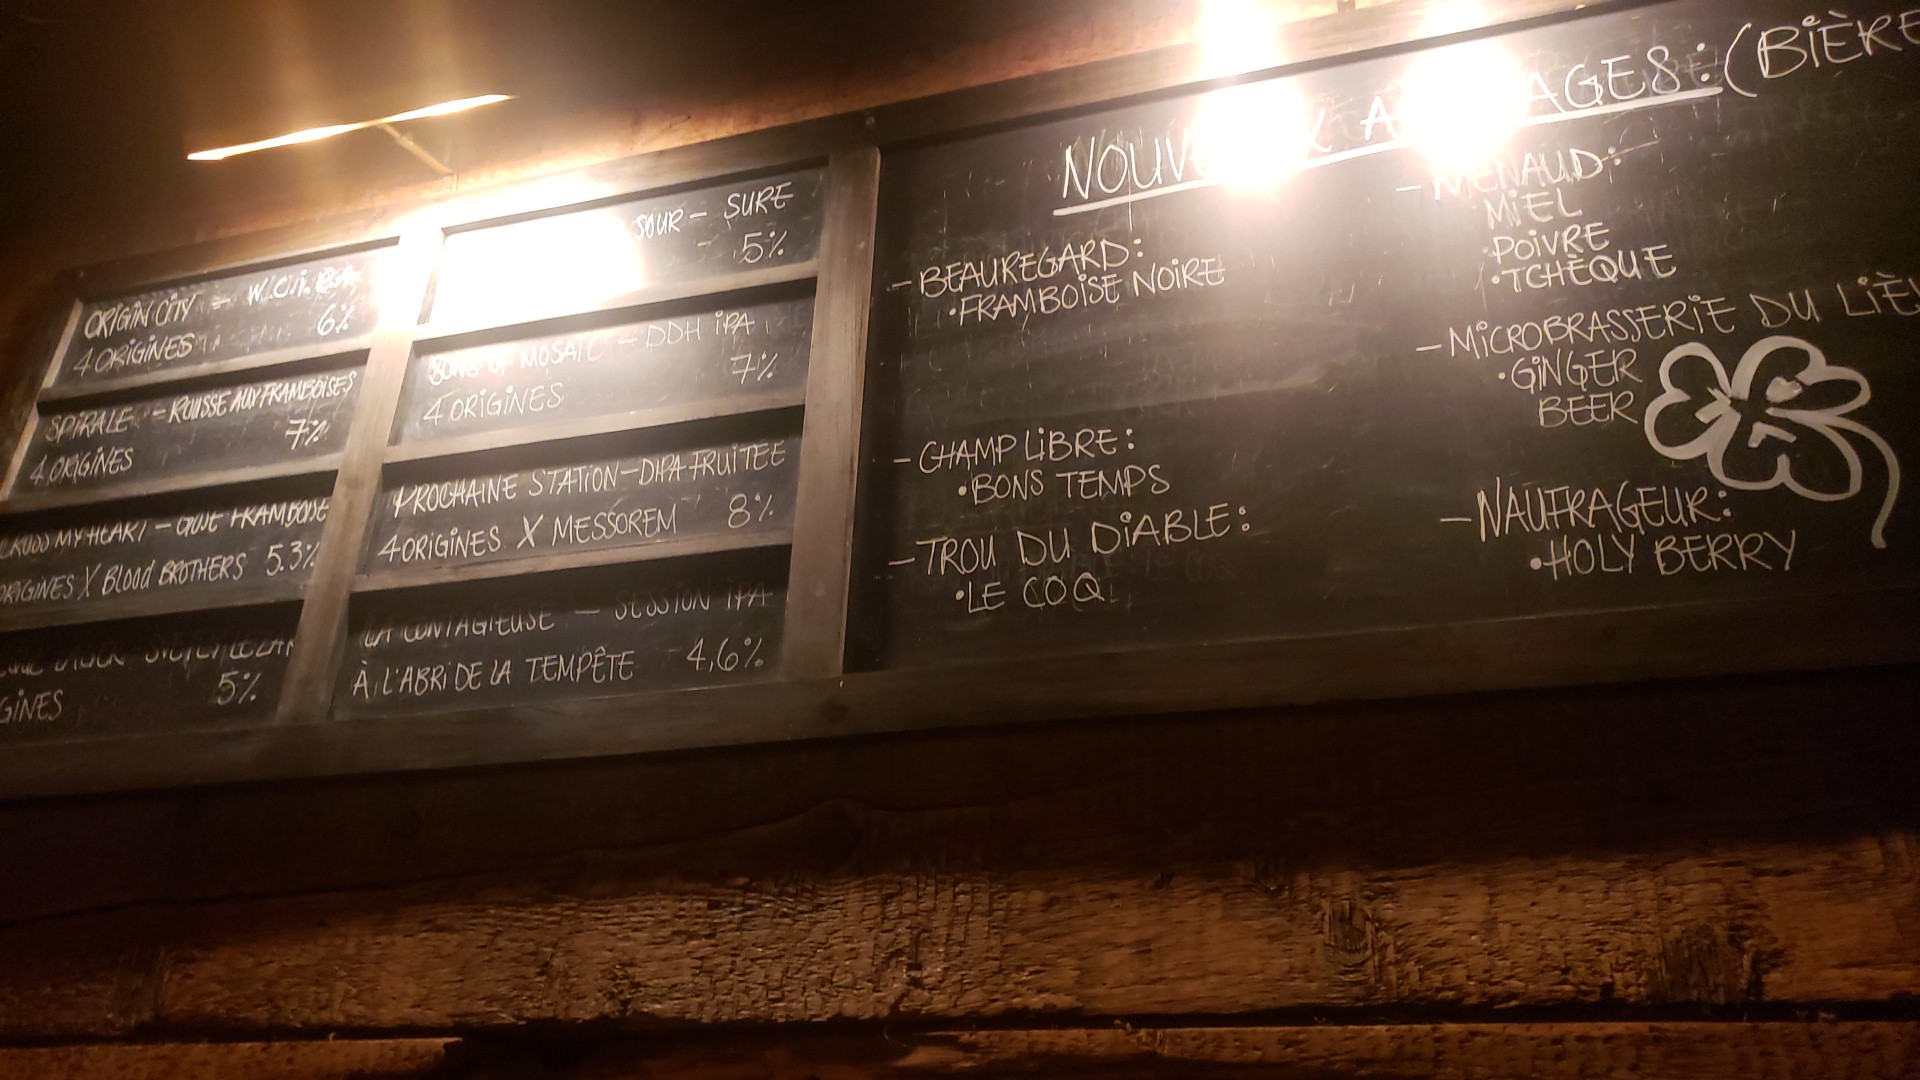 ORIGIN CITY - W.C.I.
6%
4 ORIGINES
SPIRALE - ROUSSE AUX FRAMBOISES
7%
4 ORIGINES
MY HEART - GOSE FRAMBOISE
X Blood BROTHERS 5.3%
5%
SOUR - SURE
5%
SONS OF MOSAIC - DDH IPA
7%
4 ORIGINES
PROCHAINE STATION - DIPA FRUITÉE
4 ORIGINES X MESSOREM 8%
LA CONTAGIEUSE - SESSION IPA
À L'ABRI DE LA TEMPÊTE 4,6%
(BIÈRE
- BEAUREGARD:
• FRAMBOISE NOIRE
- CHAMP LIBRE:
• BONS TEMPS
- TROU DU DIABLE:
• LE COQ
- MENAUD:
MIEL
• POIVRE
• TCHÈQUE
- MICROBRASSERIE DU
• GINGER
BEER
- NAUFRAGEUR:
• HOLY BERRY